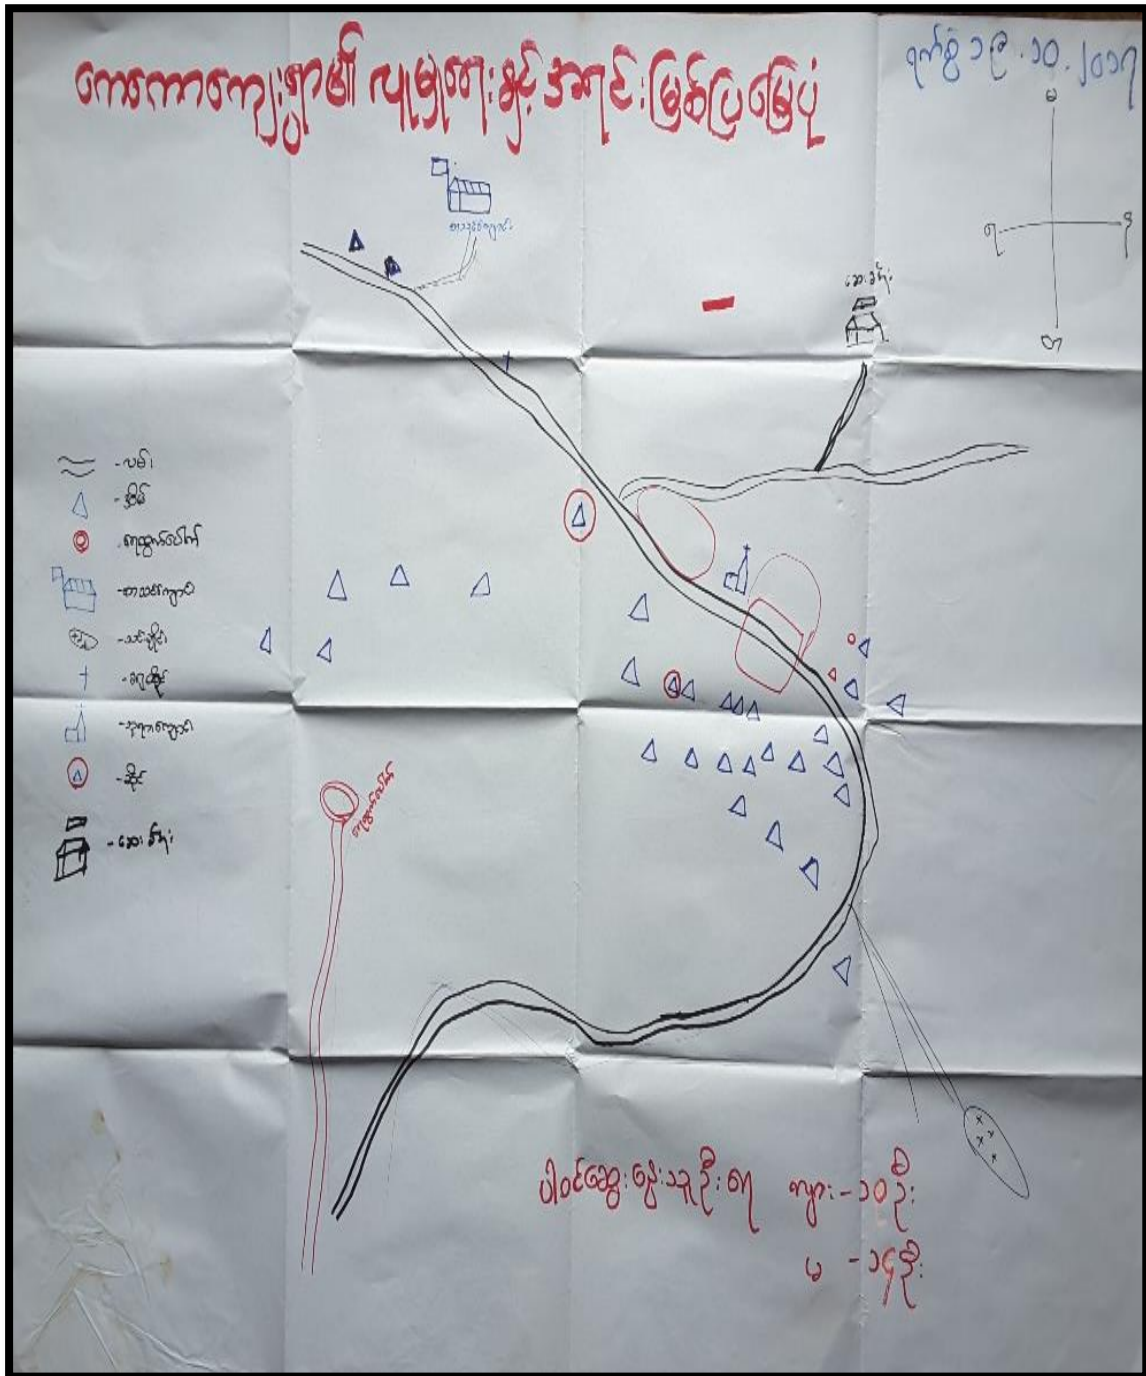 ကေကောကျေးရွာ၏ လူမှုရေးနှင့် အရင်းမြစ်ပြမြေပုံ
ရက်စွဲ ၁၉.၁၀.၂၀၁၇
မ
ရ
န
တ
စာသင်ကျောင်း
ဆေးခန်း
-လမ်း
-အိမ်
-ရေထွက်ပေါက်
-စာသင်ကျောင်း
-သင်းချိုင်း
-ခရူဆိုဒ်
-ဘုရားကျောင်း
-ဆိုင်
-ဆေးခန်း
ရေထွက်ပေါက်
ပါဝင်ဆွေးနွေးသူဦးရေ ကျား - ၁၀ဦး
မ - ၁၄ဦး